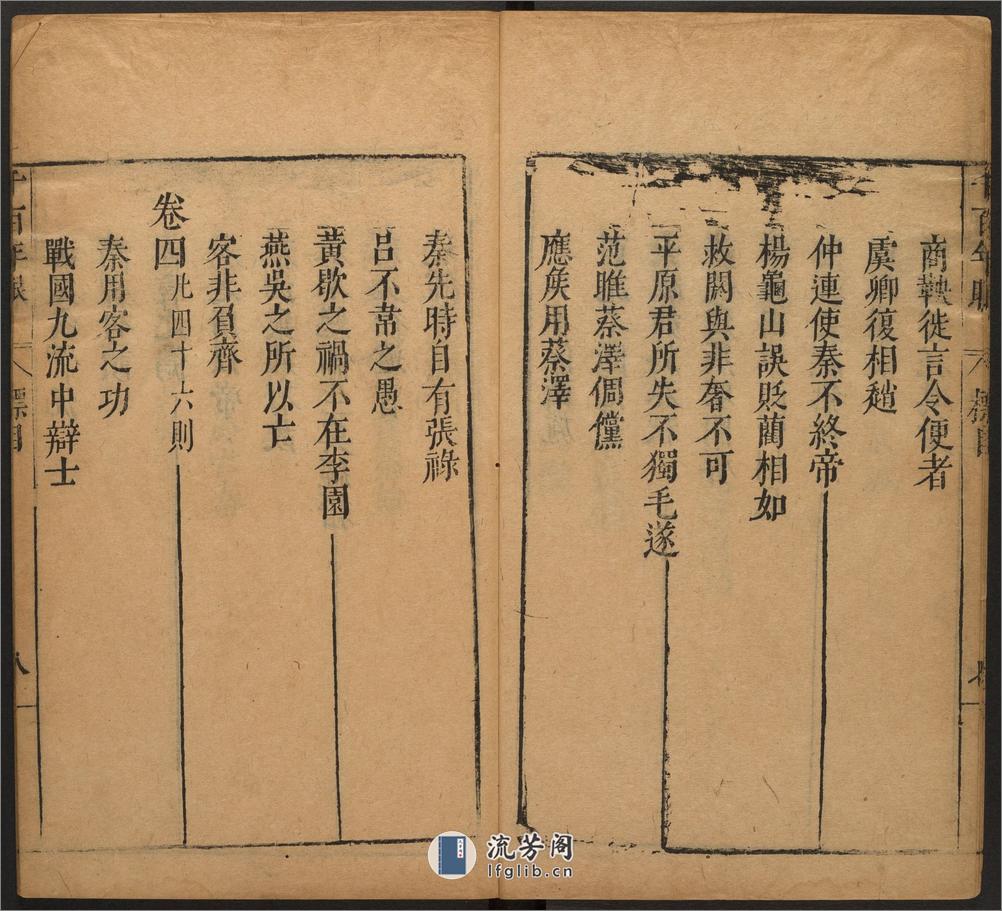 商鞅徙言令便者
虞卿復相趙
仲連使秦不終帝
楊龜山誤貶藺相如
救閼與非奢不可
平原君所失不獨毛遂
范雎蔡澤倜儻
應矦用蔡澤
秦先時自有張祿
呂不韋之愚
黃歇之禍不在李園
燕吳之所以亡
客非負齊
卷四凡四十六則
秦用客之功
戰國九流中辯士
千百年眼
標目
八
流芳阁
lfglib.cn